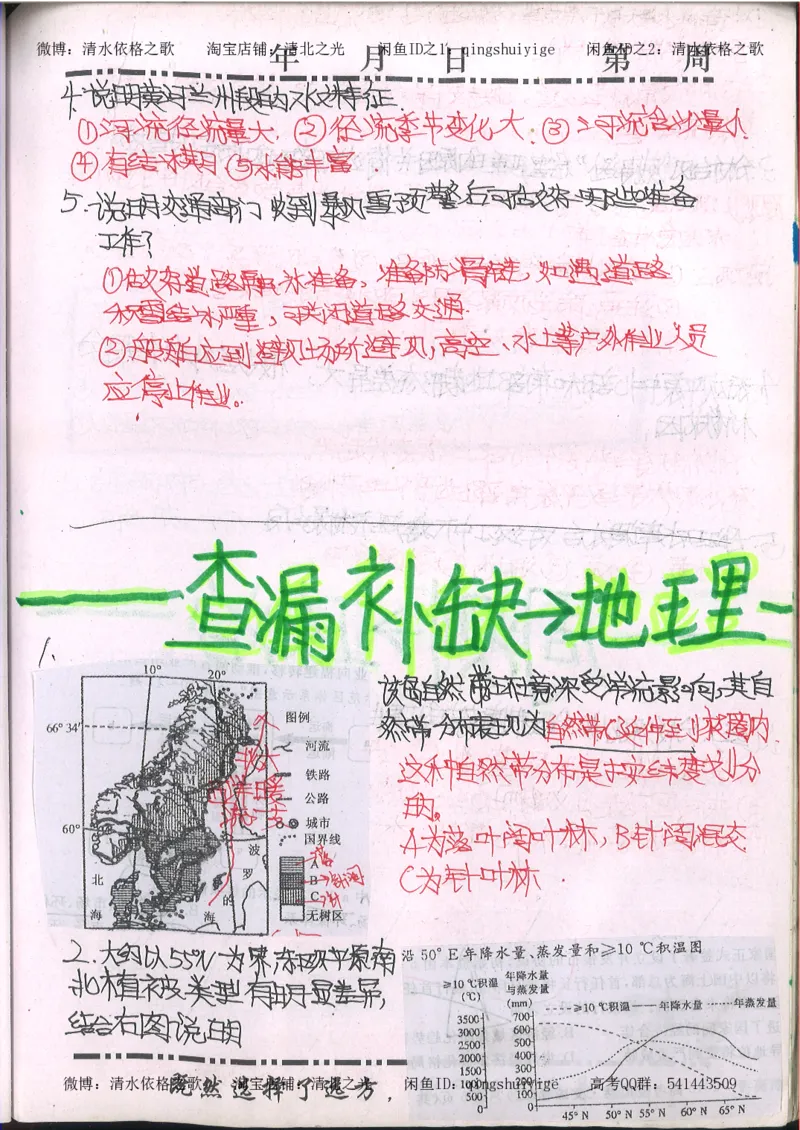 微博：清水依格之歌 淘宝店铺：清北之光 闲鱼ID之1：qingshuiyige 闲鱼ID之2：清水依格之歌
年 月 日 第 周
4. 说明黄河兰州段的水文特征.
①河流径流量大. ②径流季节变化大. ③河流含沙量小
④有结冰期 ⑤水能丰富.
5. 说明交通部门收到暴风雪预警后可做好哪些准备
工作？
①做好道路融冰准备，准备防滑链，如遇道路
积雪结冰严重，可关闭道路交通.
②船舶应到避风场所避风，高空、水上等户外作业人员
应停止作业。
查漏补缺→地理
1.
10° 20°
66°34′
60°
图例
河流
铁路
公路
城市
国界线
A
B
C
无树区
北海
波罗的海
该图自然带 深受洋流影响，其自
然带分布表现为自然带C延伸至北极圈内.
这种自然带分布是由实纬度划分
的。
A为落叶阔叶林，B针阔混交
C为针叶林
2. 大约以55°N为界，东欧平原南
北植被类型有明显差异，
结合右图说明
沿 50°E 年降水量、蒸发量和≥10℃积温图
≥10℃积温
(℃)
年降水量
与蒸发量
(mm)
≥10℃积温 年降水量 年蒸发量
3500 700
3000 600
2500 500
2000 400
1500 300
1000 200
500 100
0 0
45°N 50°N 55°N 60°N 65°N
微博：清水依格之歌 淘宝店铺：清北之光 闲鱼ID：qingshuiyige 高考QQ群：541443509
既然选择了远方，